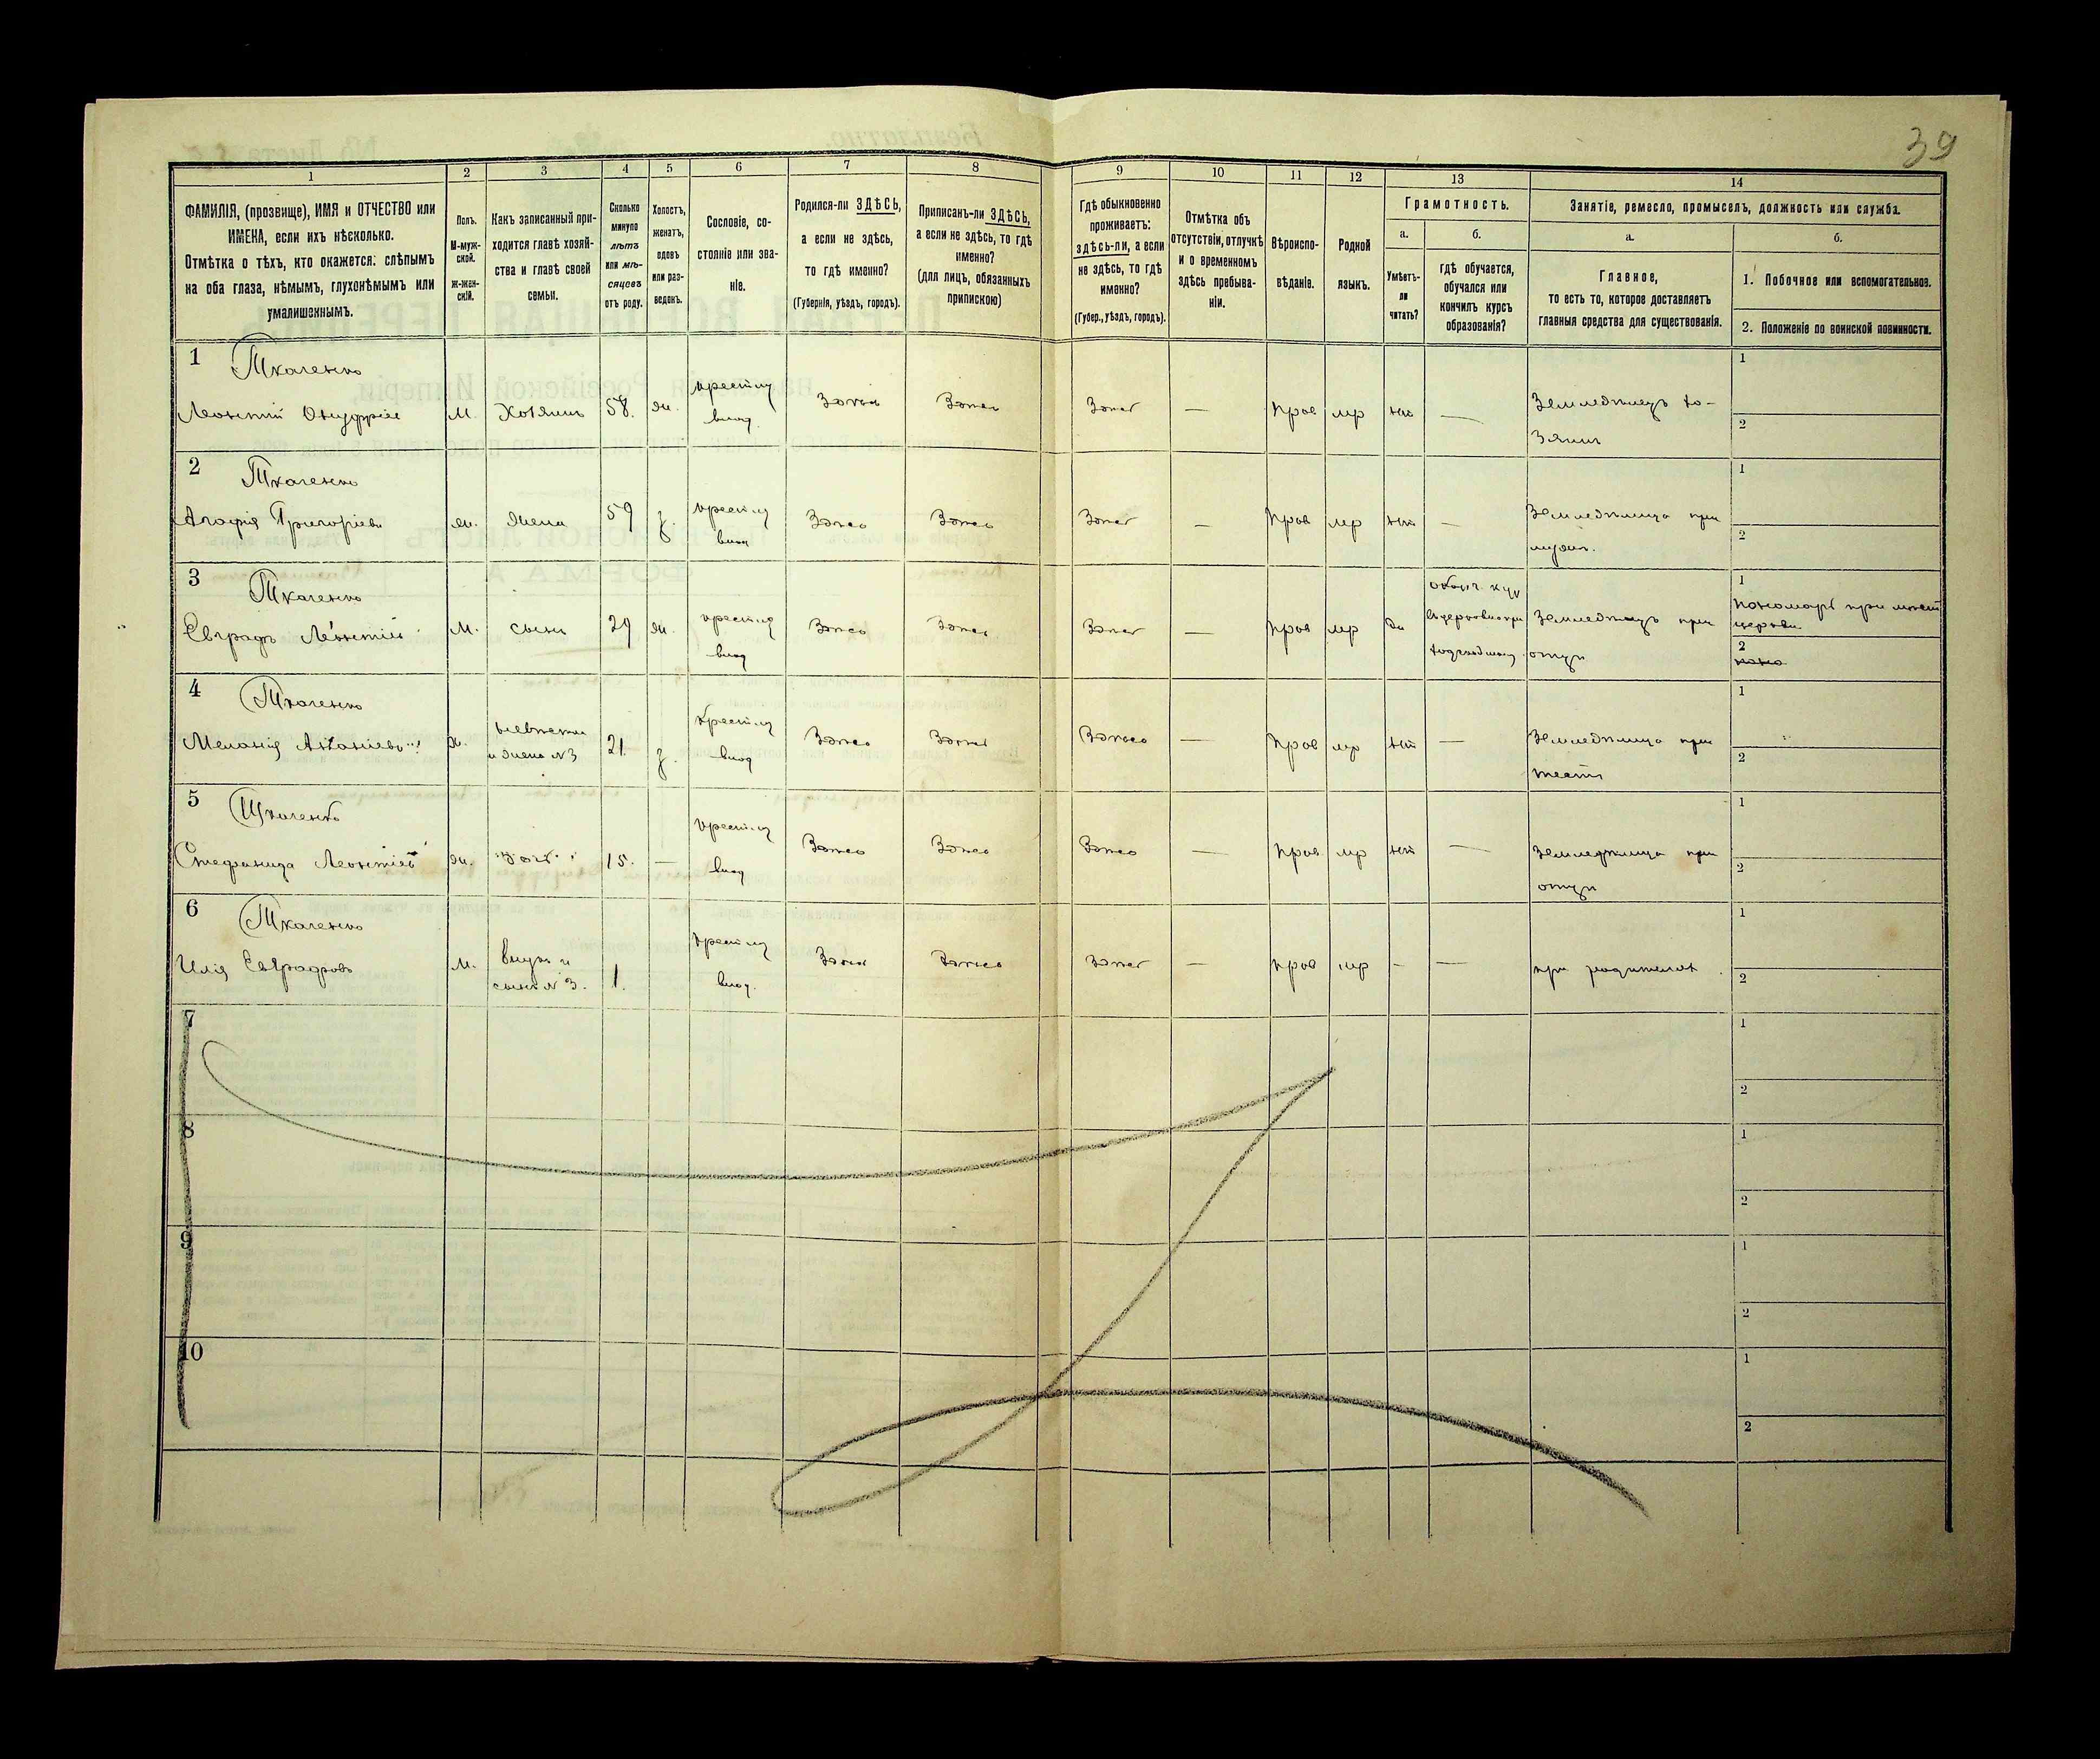 39
1 2 3 4 5 6 7 8 9 10 11 12 13 14
ФАМИЛІЯ, (прозвище), ИМЯ и ОТЧЕСТВО или
ИМЕНА, если ихъ нѣсколько.
Отмѣтка о тѣхъ, кто окажется: слѣпымъ
на оба глаза, нѣмымъ, глухонѣмымъ или
умалишеннымъ.
Полъ.
М-муж-
ской.
Ж-жен-
скій.
Какъ записанный при-
ходится главѣ хозяй-
ства и главѣ своей
семьи.
Сколько
минуло
лѣтъ
или мѣ-
сяцевъ
отъ роду.
Холостъ,
женатъ,
вдовъ
или раз-
веденъ.
Сословіе, со-
стояніе или зва-
ніе.
Родился-ли ЗДѢСЬ,
а если не здѣсь,
то гдѣ именно?
(Губернія, уѣздъ, городъ).
Приписанъ-ли ЗДѢСЬ,
а если не здѣсь, то гдѣ
именно?
(для лицъ, обязанныхъ
припискою)
Гдѣ обыкновенно
проживаетъ:
здѣсь-ли, а если
не здѣсь, то гдѣ
именно?
(Губер., уѣздъ, городъ).
Отмѣтка объ
отсутствіи, отлучкѣ
и о временномъ
здѣсь пребыва-
ніи.
Вѣроиспо-
вѣданіе.
Родной
языкъ.
Грамотность.
а.
Умѣетъ-
ли
читать?
б.
гдѣ обучается,
обучался или
кончилъ курсъ
образованія?
Занятіе, ремесло, промыселъ, должность или служба.
а.
Главное,
то есть то, которое доставляетъ
главныя средства для существованія.
б.
1. Побочное или вспомогательное.
2. Положеніе по воинской повинности.
1 Ткаченко
Леонтій Онуфріев М. Хозяинъ 58. ж. крестьян Здѣсь Здѣсь Здѣсь — прав мр нѣт — Земледѣлецъ хо-
влад. зяинъ
1
2
2 Ткаченко
Агафія Григоріев ж. жена 59 з. крестьян Здѣсь Здѣсь Здѣсь — прав мр нѣт — Земледѣлица при
влад мужѣ.
1
2
3 Ткаченко
Евграфъ Леонтіев М. сынъ 29 ж. крестьян Здѣсь Здѣсь Здѣсь — прав мр да Земледѣлецъ при
влад отцѣ
1
Пономарь при мѣст
церкви
2
4 Ткаченко
Меланія Ананіев ж. невѣстка 21. з. крестьян Здѣсь Здѣсь Здѣсь — прав мр нѣт — Земледѣлица при
и жена № 3 влад тестѣ
1
2
5 Ткаченко
Стефанида Леонтіев ж. дочь 15. — крестьян Здѣсь Здѣсь Здѣсь — прав мр нѣт — Земледѣлица при
влад отцѣ
1
2
6 Ткаченко
Илія Евграфовъ М. внукъ и 1. крестьян Здѣсь Здѣсь Здѣсь — прав мр — — при родителях
сынъ № 3. влад.
1
2
7
1
2
8
1
2
9
1
2
10
1
2